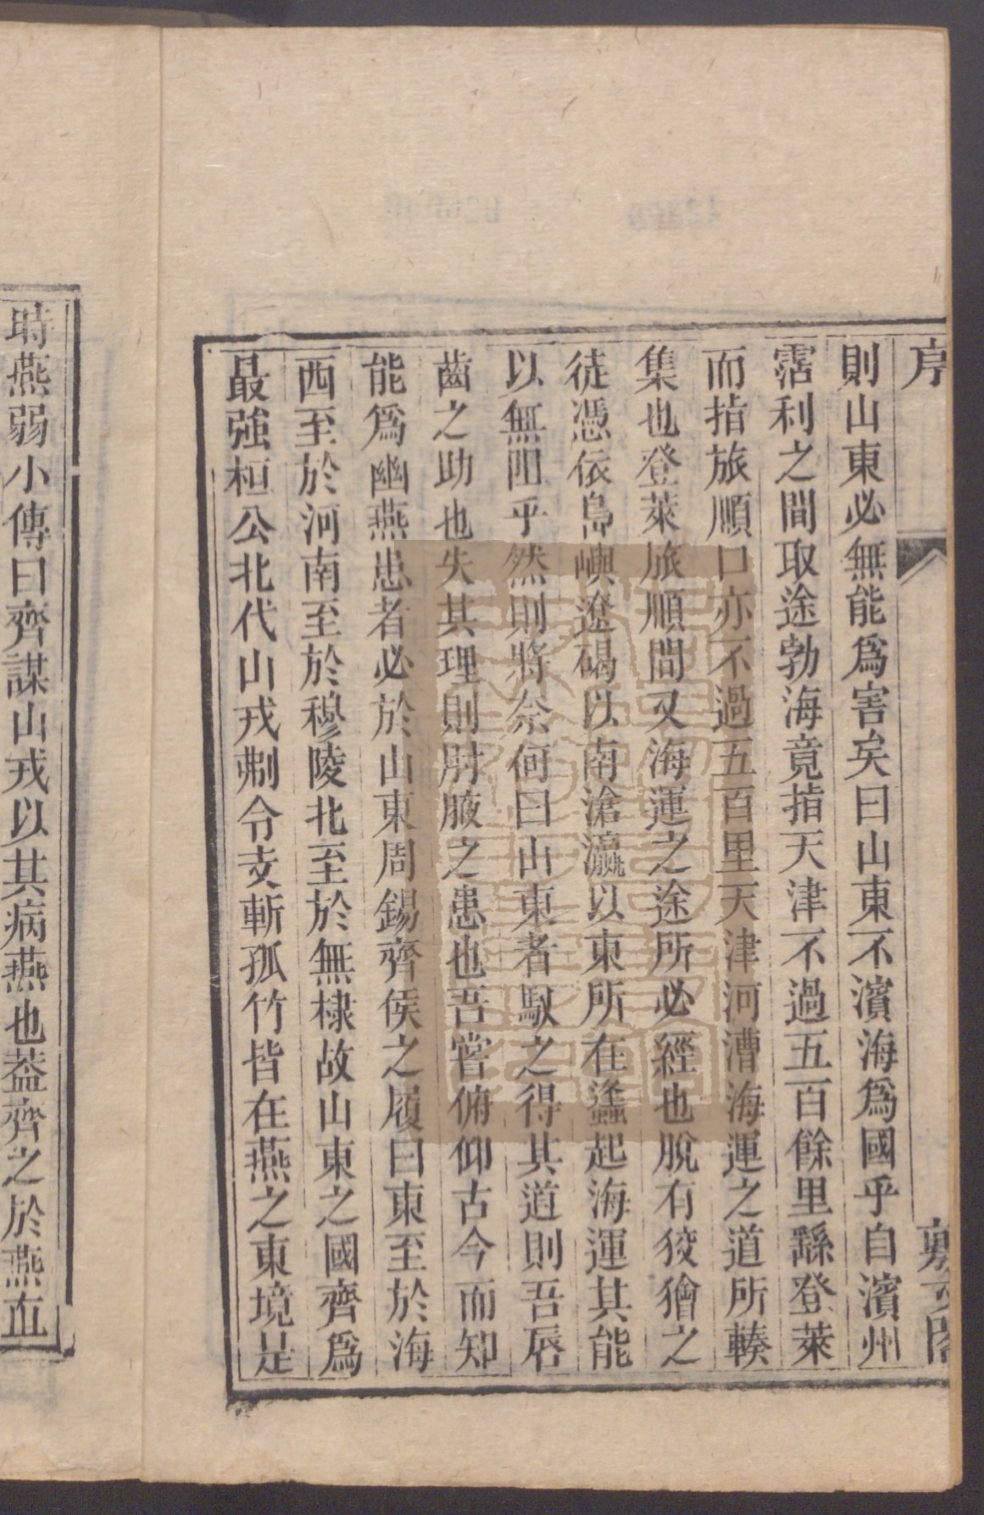 序
敷文閣
則山東必無能爲害矣曰山東不濱海爲國乎自濱州
霑利之間取途勃海竟指天津不過五百餘里繇登萊
而指旅順口亦不過五百里天津河漕海運之道所輳
集也登萊旅順間又海運之途所必經也脫有狡獪之
徒憑依島嶼遼碣以南滄瀛以東所在蠭起海運其能
以無阻乎然則將奈何曰山東者馭之得其道則吾唇
齒之助也失其理則肘腋之患也吾嘗俯仰古今而知
能爲幽燕患者必於山東周錫齊侯之履曰東至於海
西至於河南至於穆陵北至於無棣故山東之國齊爲
最強桓公北伐山戎刜令支斬孤竹皆在燕之東境是
時燕弱小傳曰齊謀山戎以其病燕也葢齊之於燕直